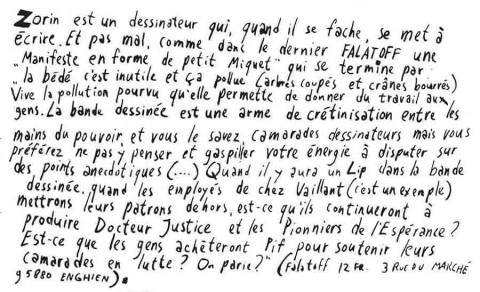 Zorin est un dessinateur qui, quand il se fache, se met à
écrire. Et pas mal, comme dans le dernier FALATOFF une
"Manifeste en forme de petit Miquet" qui se termine par
"la bédé c'est inutile et ça pollue (arbres coupés et crânes bourrés)
Vive la pollution pourvu qu'elle permette de donner du travail aux
gens. La bande dessinée est une arme de crétinisation entre les
mains du pouvoir, et vous le savez, camarades dessinateurs mais vous
préférez ne pas y penser et gaspiller votre énergie à disputer sur
des points anecdotiques (....) Quand il y aura un Lip dans la bande
dessinée, quand les employés de chez Vaillant (c'est un exemple)
mettrons leurs patrons dehors, est-ce qu'ils continueront à
produire Docteur Justice et les Pionniers de l'Espérance?
Est-ce que les gens achèteront Pif pour soutenir leurs
camarades en lutte? On parie?" (Falatoff 12 Fr. 3 RUE DU MARCHÉ
95880 ENGHIEN).